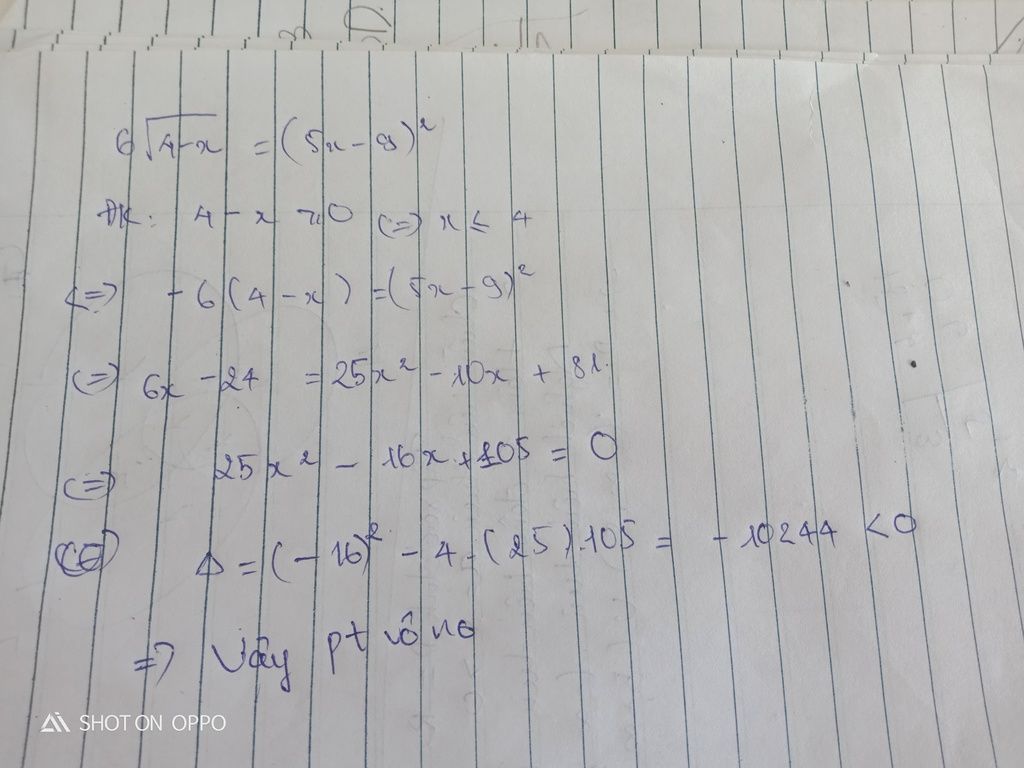 6√(4-x) = (5x-9)²
ĐK: 4 - x ≥ 0 (=) x ≤ 4
(=) - 6(4-x) = (5x-9)²
(=) 6x - 24 = 25x² - 10x + 81.
(=) 25x² - 16x + 105 = 0
Δ = (-16)² - 4.(25).105 = - 10244 < 0
=) Vậy pt vô no
SHOT ON OPPO